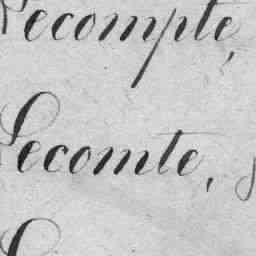 Lecompte,
Lecomte,